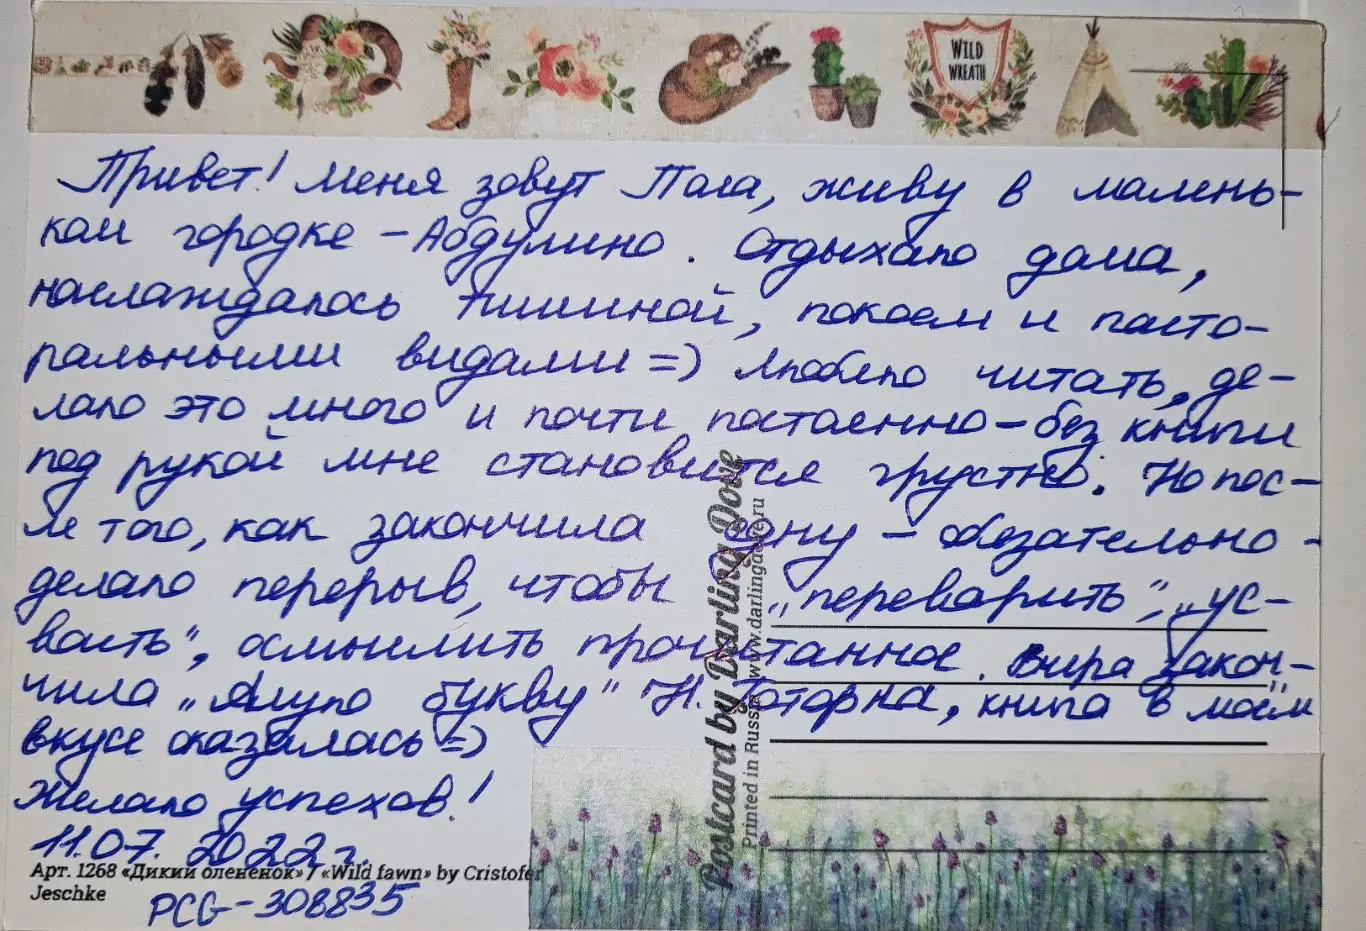 WILD
WREATH
Привет! Меня зовут Лага, живу в малень-
ком городке - Абдулино. Отдыхаю дома,
наслаждаюсь тишиной, покоем и пасто-
ральными видами =) Люблю читать, де-
лаю это много и почти постоянно - без книги
под рукой мне становится грустно. Но пос-
ле того, как закончила одну - обязательно
делаю перерыв, чтобы „переварить", „ус-
воить", осмыслить прочитанное. Вчера закон-
чила „Алую букву" Н. Готорна, книга в моём
вкусе оказалась =)
Желаю успехов!
11.07.2022 г.
Арт. 1268 «Дикий олененок» / «Wild fawn» by Cristofer
Jeschke
PCG-308835
Postcard by Darling Dove
Printed in Russia www.darlingdove.ru